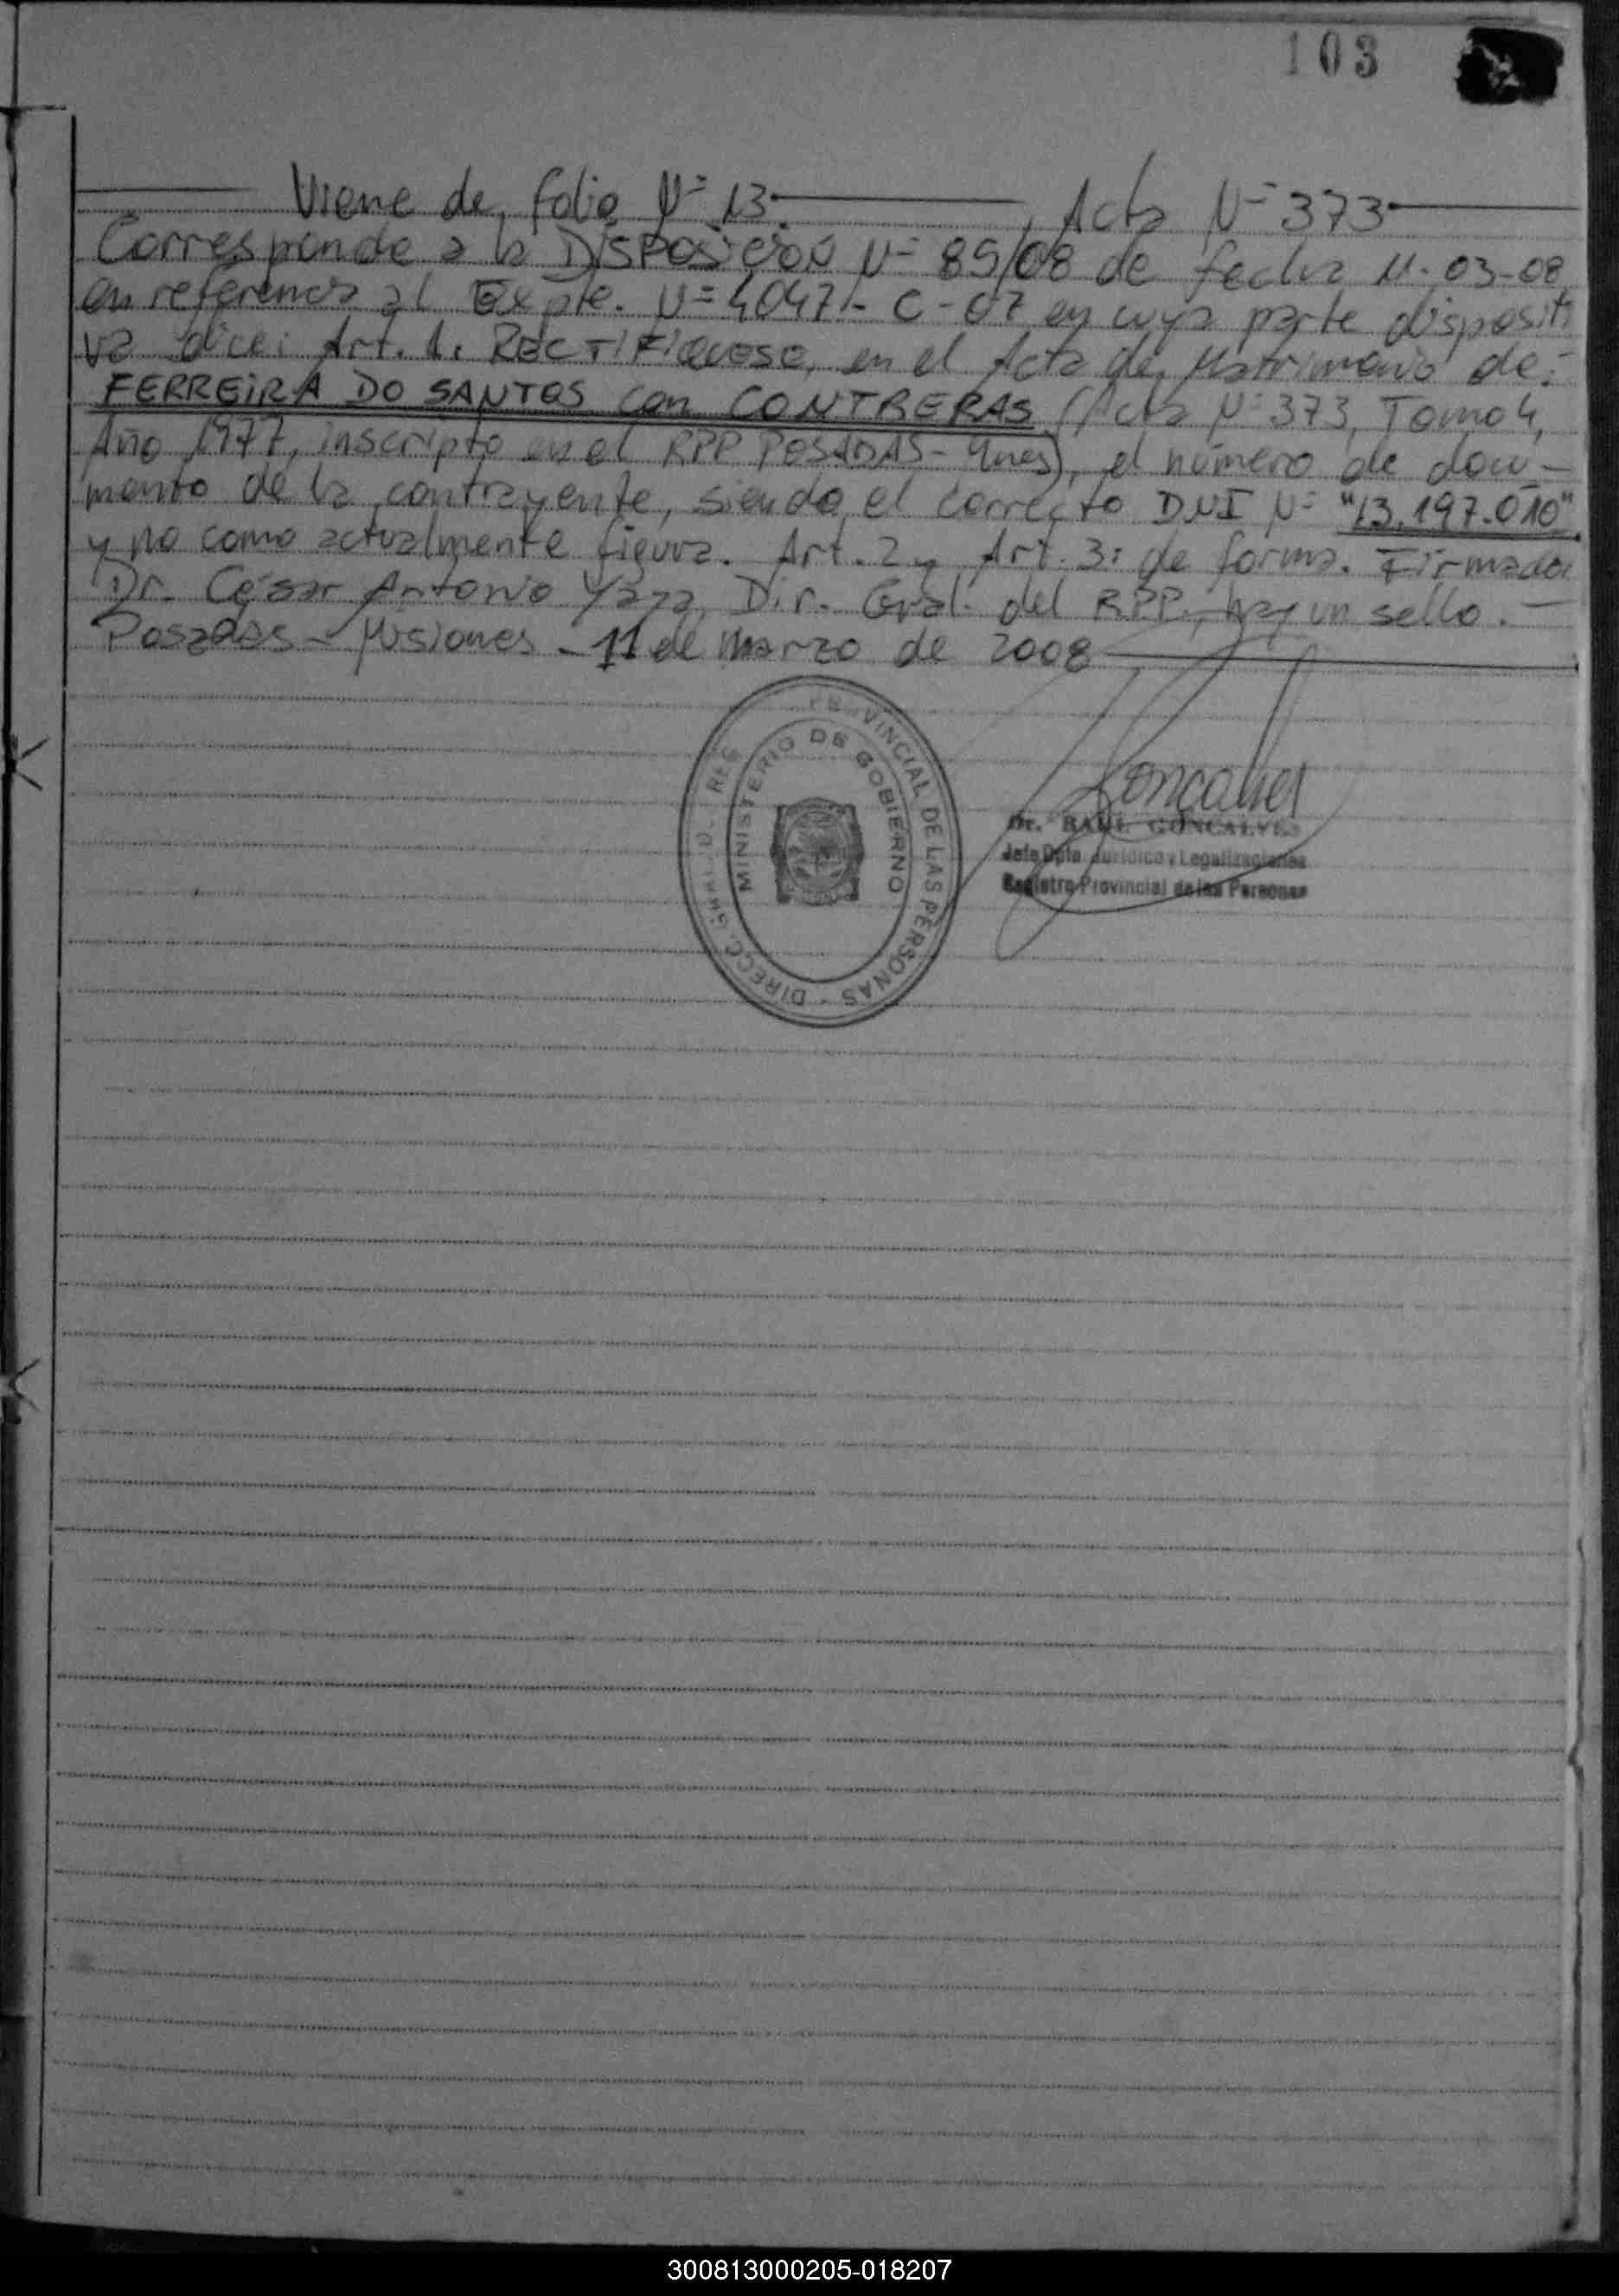 103
Viene de folio Nº 13. Acta Nº 373
Corresponde a la DISPOSICION Nº 85/08 de fecha 11-03-08
en referencia al Expte. Nº 4047- C-07 en cuya parte dispositi
va dice: Art. 1. RECTIFIQUESE, en el Acta de Matrimonio de:
FERREIRA DO SANTOS con CONTRERAS (Acta Nº 373, Tomo 4,
Año 1977, inscripto en el RPP POSADAS - Mnes), el número de docu-
mento de la contrayente, siendo el correcto DNI Nº "13.197.010"
y no como actualmente figura. Art. 2 y Art. 3: de forma. Firmado:
Dr. César Antonio Dir. Gral. del RPP., hay un sello.-
Posadas - Misiones - 11 de Marzo de 2008
DIRECC. GRAL. DEL REG. PROVINCIAL DE LAS PERSONAS -
MINISTERIO DE GOBIERNO
Dr. RAUL GONCALVES
Jefe Dpto. Jurídico y Legalizaciones
Registro Provincial de las Personas
300813000205-018207